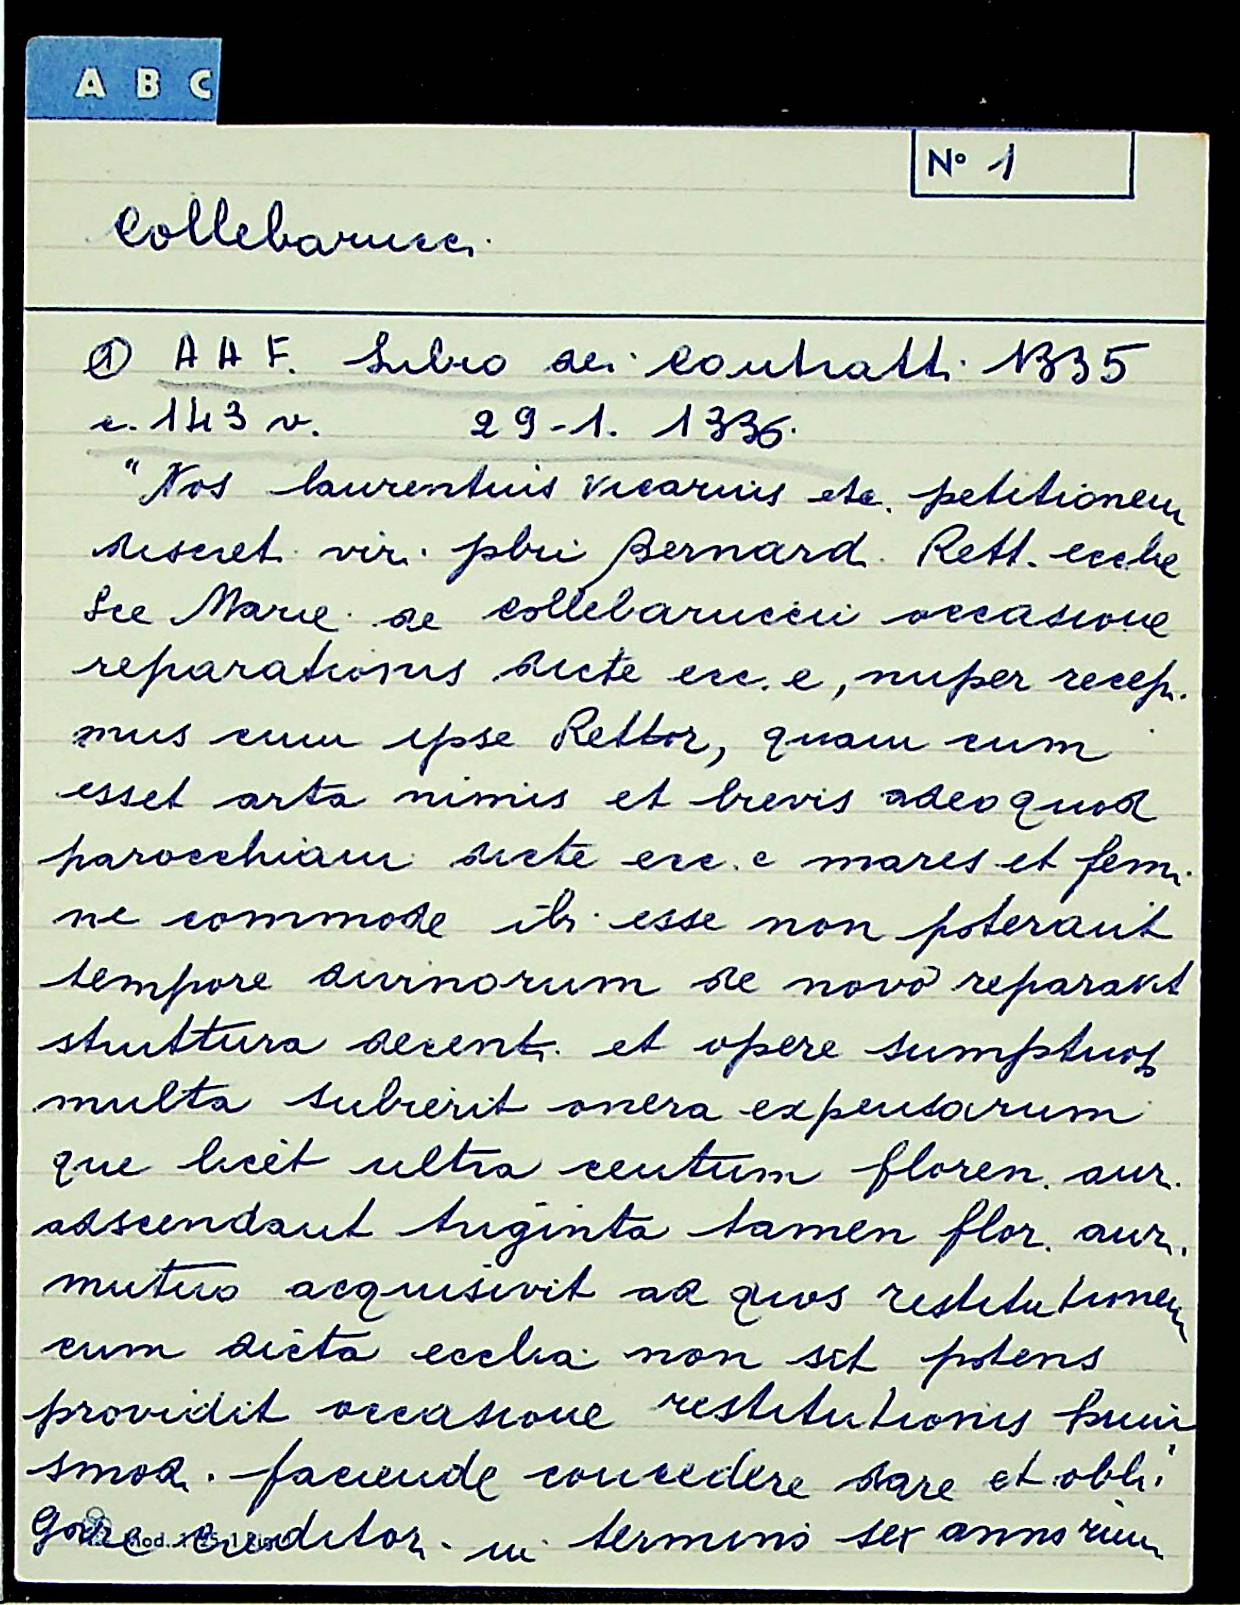 A B C
Nº 1
Collebarucci
① A A F. Libro dei Contratti 1335
c. 143 v. 29-1. 1336.
"Nos laurentius vicarius etc. petitionem
discret. vir. pbri Bernard. Rett. ecclie
Sce Marie de Collebaruccii occasione
reparationis dicte ecc.e, nuper recepi
mus cum ipse Rettor, quam cum
esset arta nimis et brevis adeo quod
parocchiani dicte ecc.e mares et femi
ne commode ibi esse non poterant
tempore divinorum de novo reparavit
struttura decenti et opere sumptuos
multa subierit onera expensarum
que licet ultra centum floren. aur.
adscendant triginta tamen flor. aur.
mutuo acquisivit ad quos restitutionem
cum dicta ecclia non sit potens
providit occasione restitutionis huiu
smodi faciende concedere dare et obli
gare creditor. in termino sex annorum